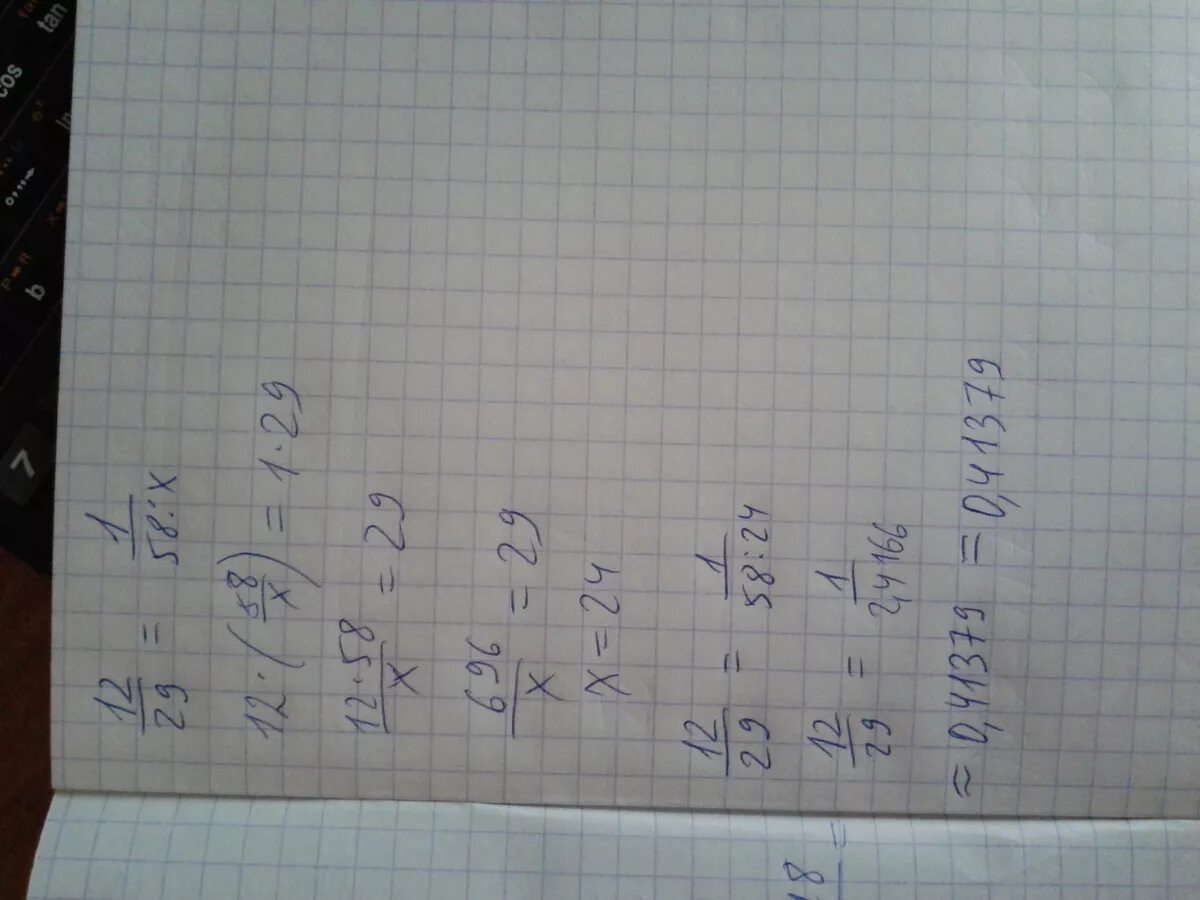 12/29 = 1/(58:x)
12·(58/x) = 1·29
12·58/x = 29
696/x = 29
x = 24
12/29 = 1/(58:24)
12/29 = 1/2,4166
≈ 0,41379 = 0,41379
18 =
tan
cos
7
b
P→R